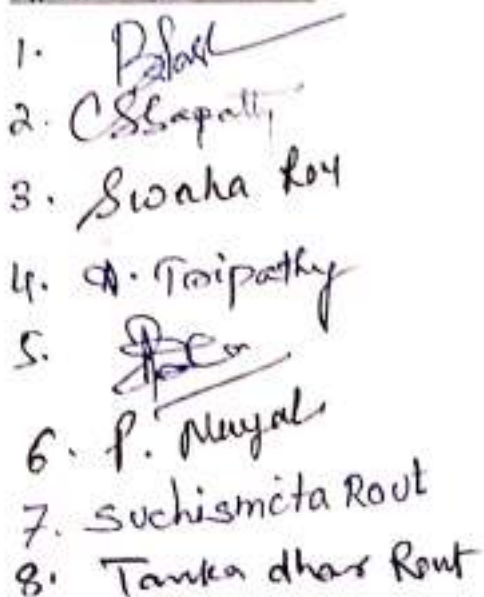 1.
2. CSSapathy
3. Swaha Roy
4. A. Tripathy
5.
6. P. Nayak
7. Suchismita Rout
8. Tanka dhar Rout